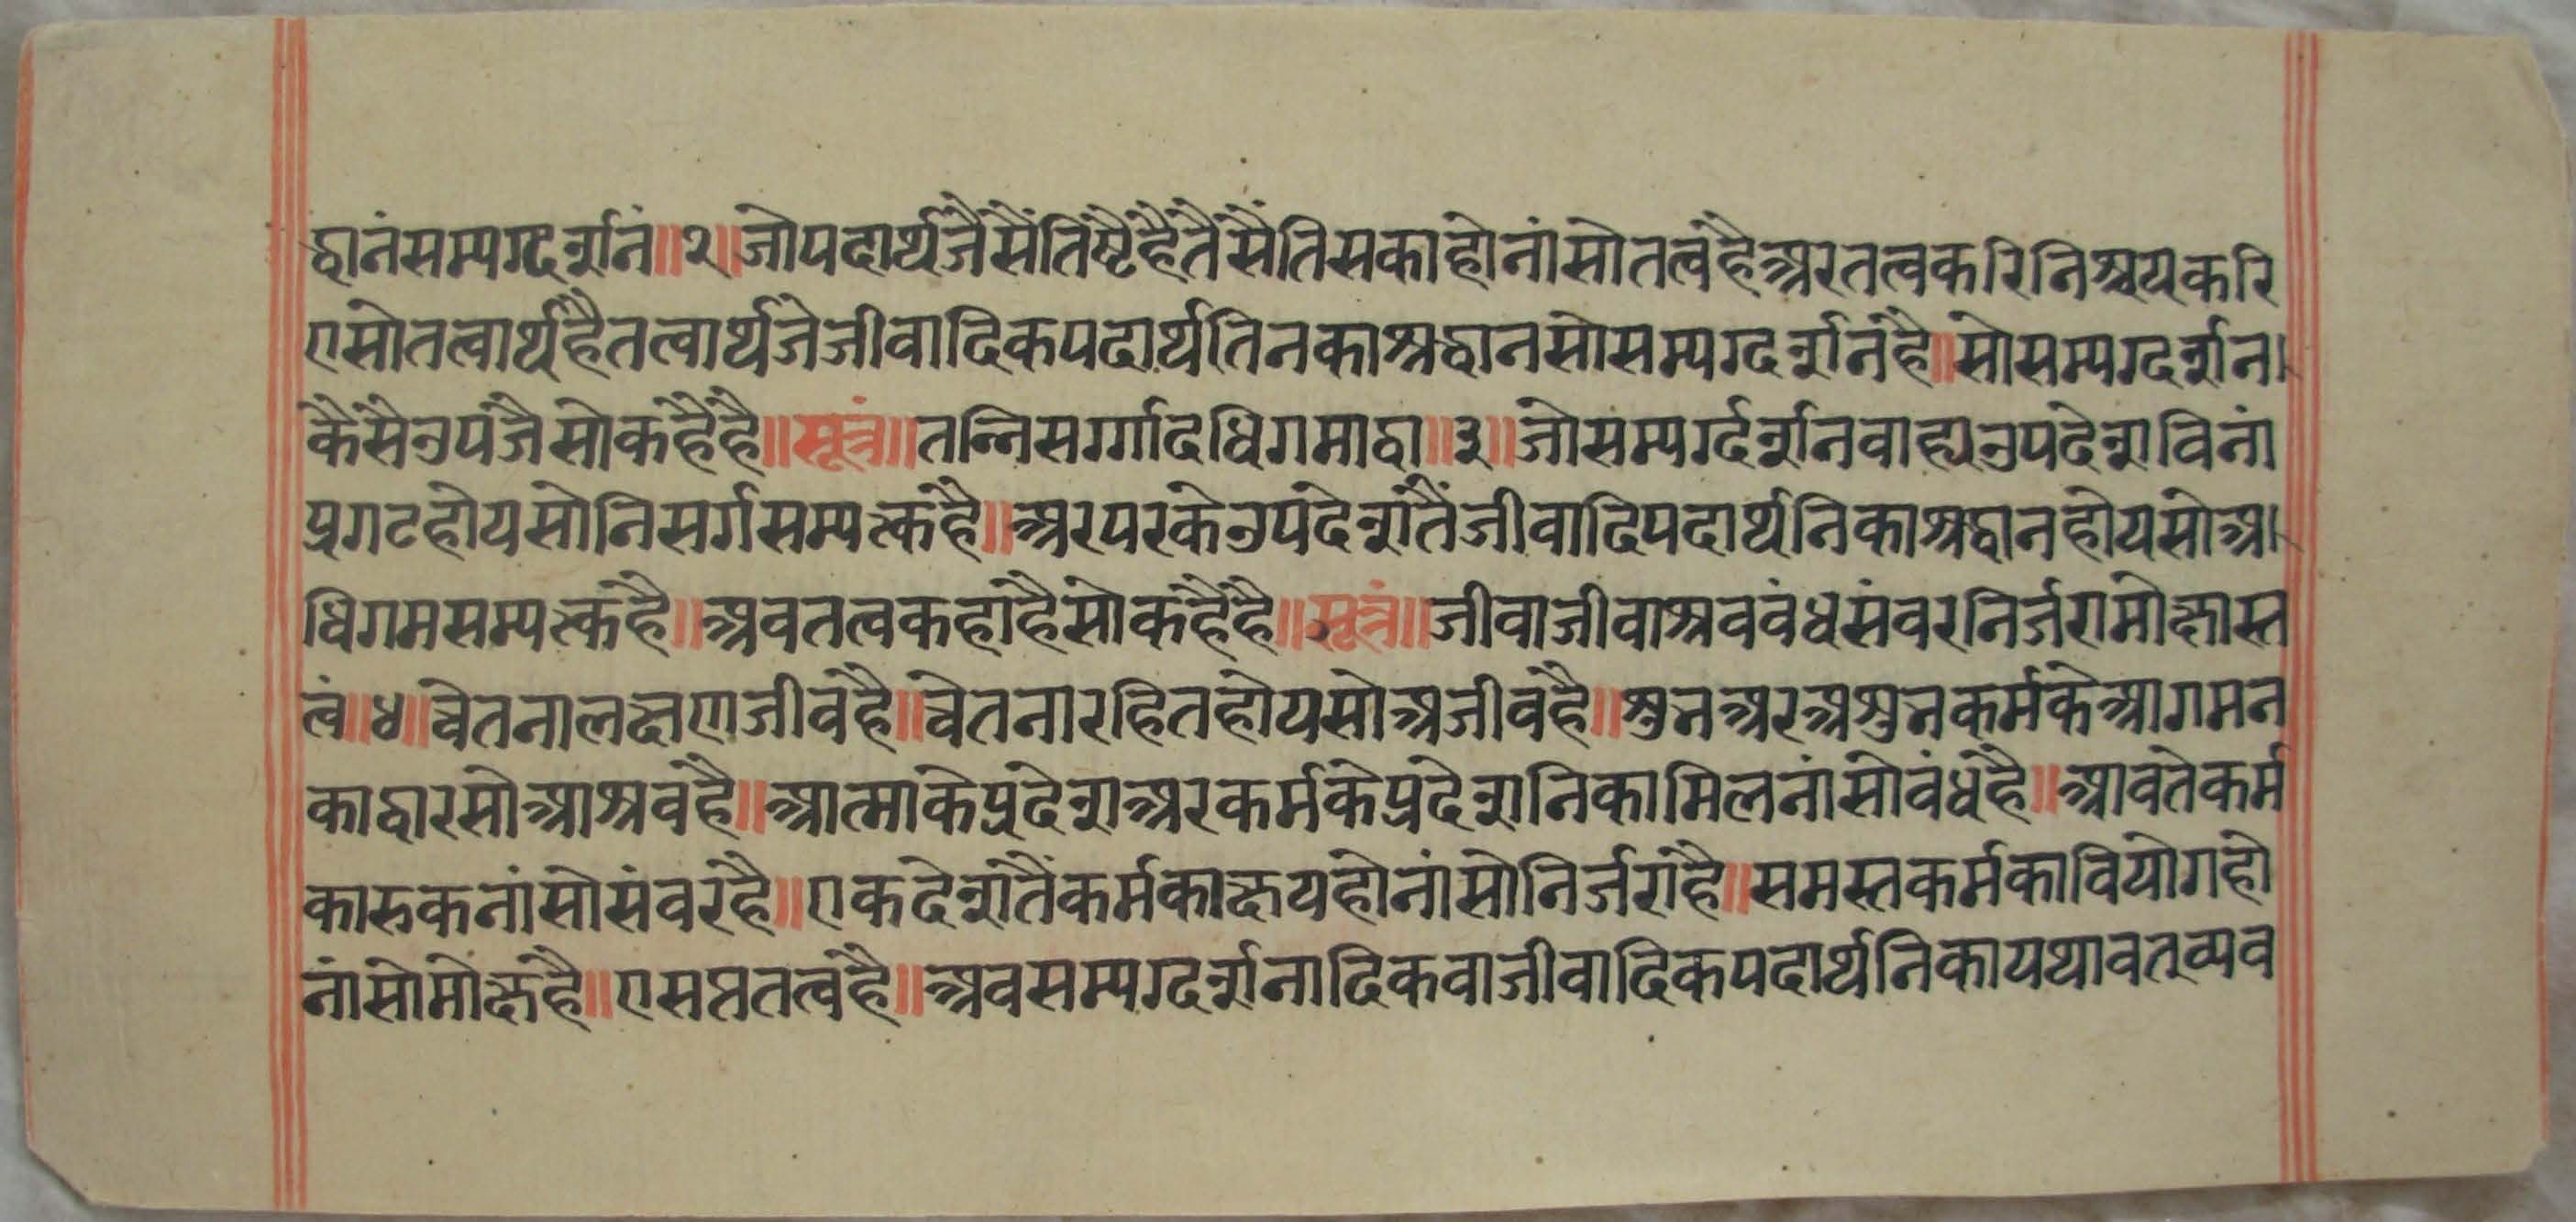 द्धानंसम्यग्दर्शनं॥२॥जोपदार्थजैसैंतिष्टैहैतैसैंतिसकाहोनांसोतत्वहैअरतत्वकरिनिश्चयकरि
एसोतत्वार्थहैतत्वार्थजेजीवादिकपदार्थतिनकाश्रद्धानसोसम्यग्दर्शनहै॥सोसम्यग्दर्शन।
कैसैंउपजैसोकहैहै॥सूत्रं॥तन्निसर्ग्गादधिगमाद्वा॥३॥जोसम्यर्ग्दर्शनवाह्यउपदेशविनां
प्रगटहोयसोनिसर्गसम्यत्कहै॥अरपरकेउपदेशतैंजीवादिपदार्थनिकाश्रद्धानहोयसोअ।
धिगमसम्यत्कहै॥अवतत्वकहाहैसोकहैहै॥सूत्रं॥जीवाजीवाश्रववंधसंवरनिर्जरामोक्षास्त
त्वं॥४॥चेतनालक्षणजीवहै॥चेतनारहितहोयसोअजीवहै॥शुभअरअशुभकर्मकेआगमन
काद्वारसोआश्रवहै॥आत्माकेप्रदेशअरकर्मकेप्रदेशनिकामिलनांसोवंधहै॥आवतेकर्म
कारुकनांसोसंवरहै॥एकदेशतैंकर्मकाक्षयहोनांसोनिर्जराहै॥समस्तकर्मकावियोगहो
नांसोमोक्षहै॥एसप्ततत्वहै॥अवसम्यग्दर्शनादिकवाजीवादिकपदार्थनिकायथावत्व्यव